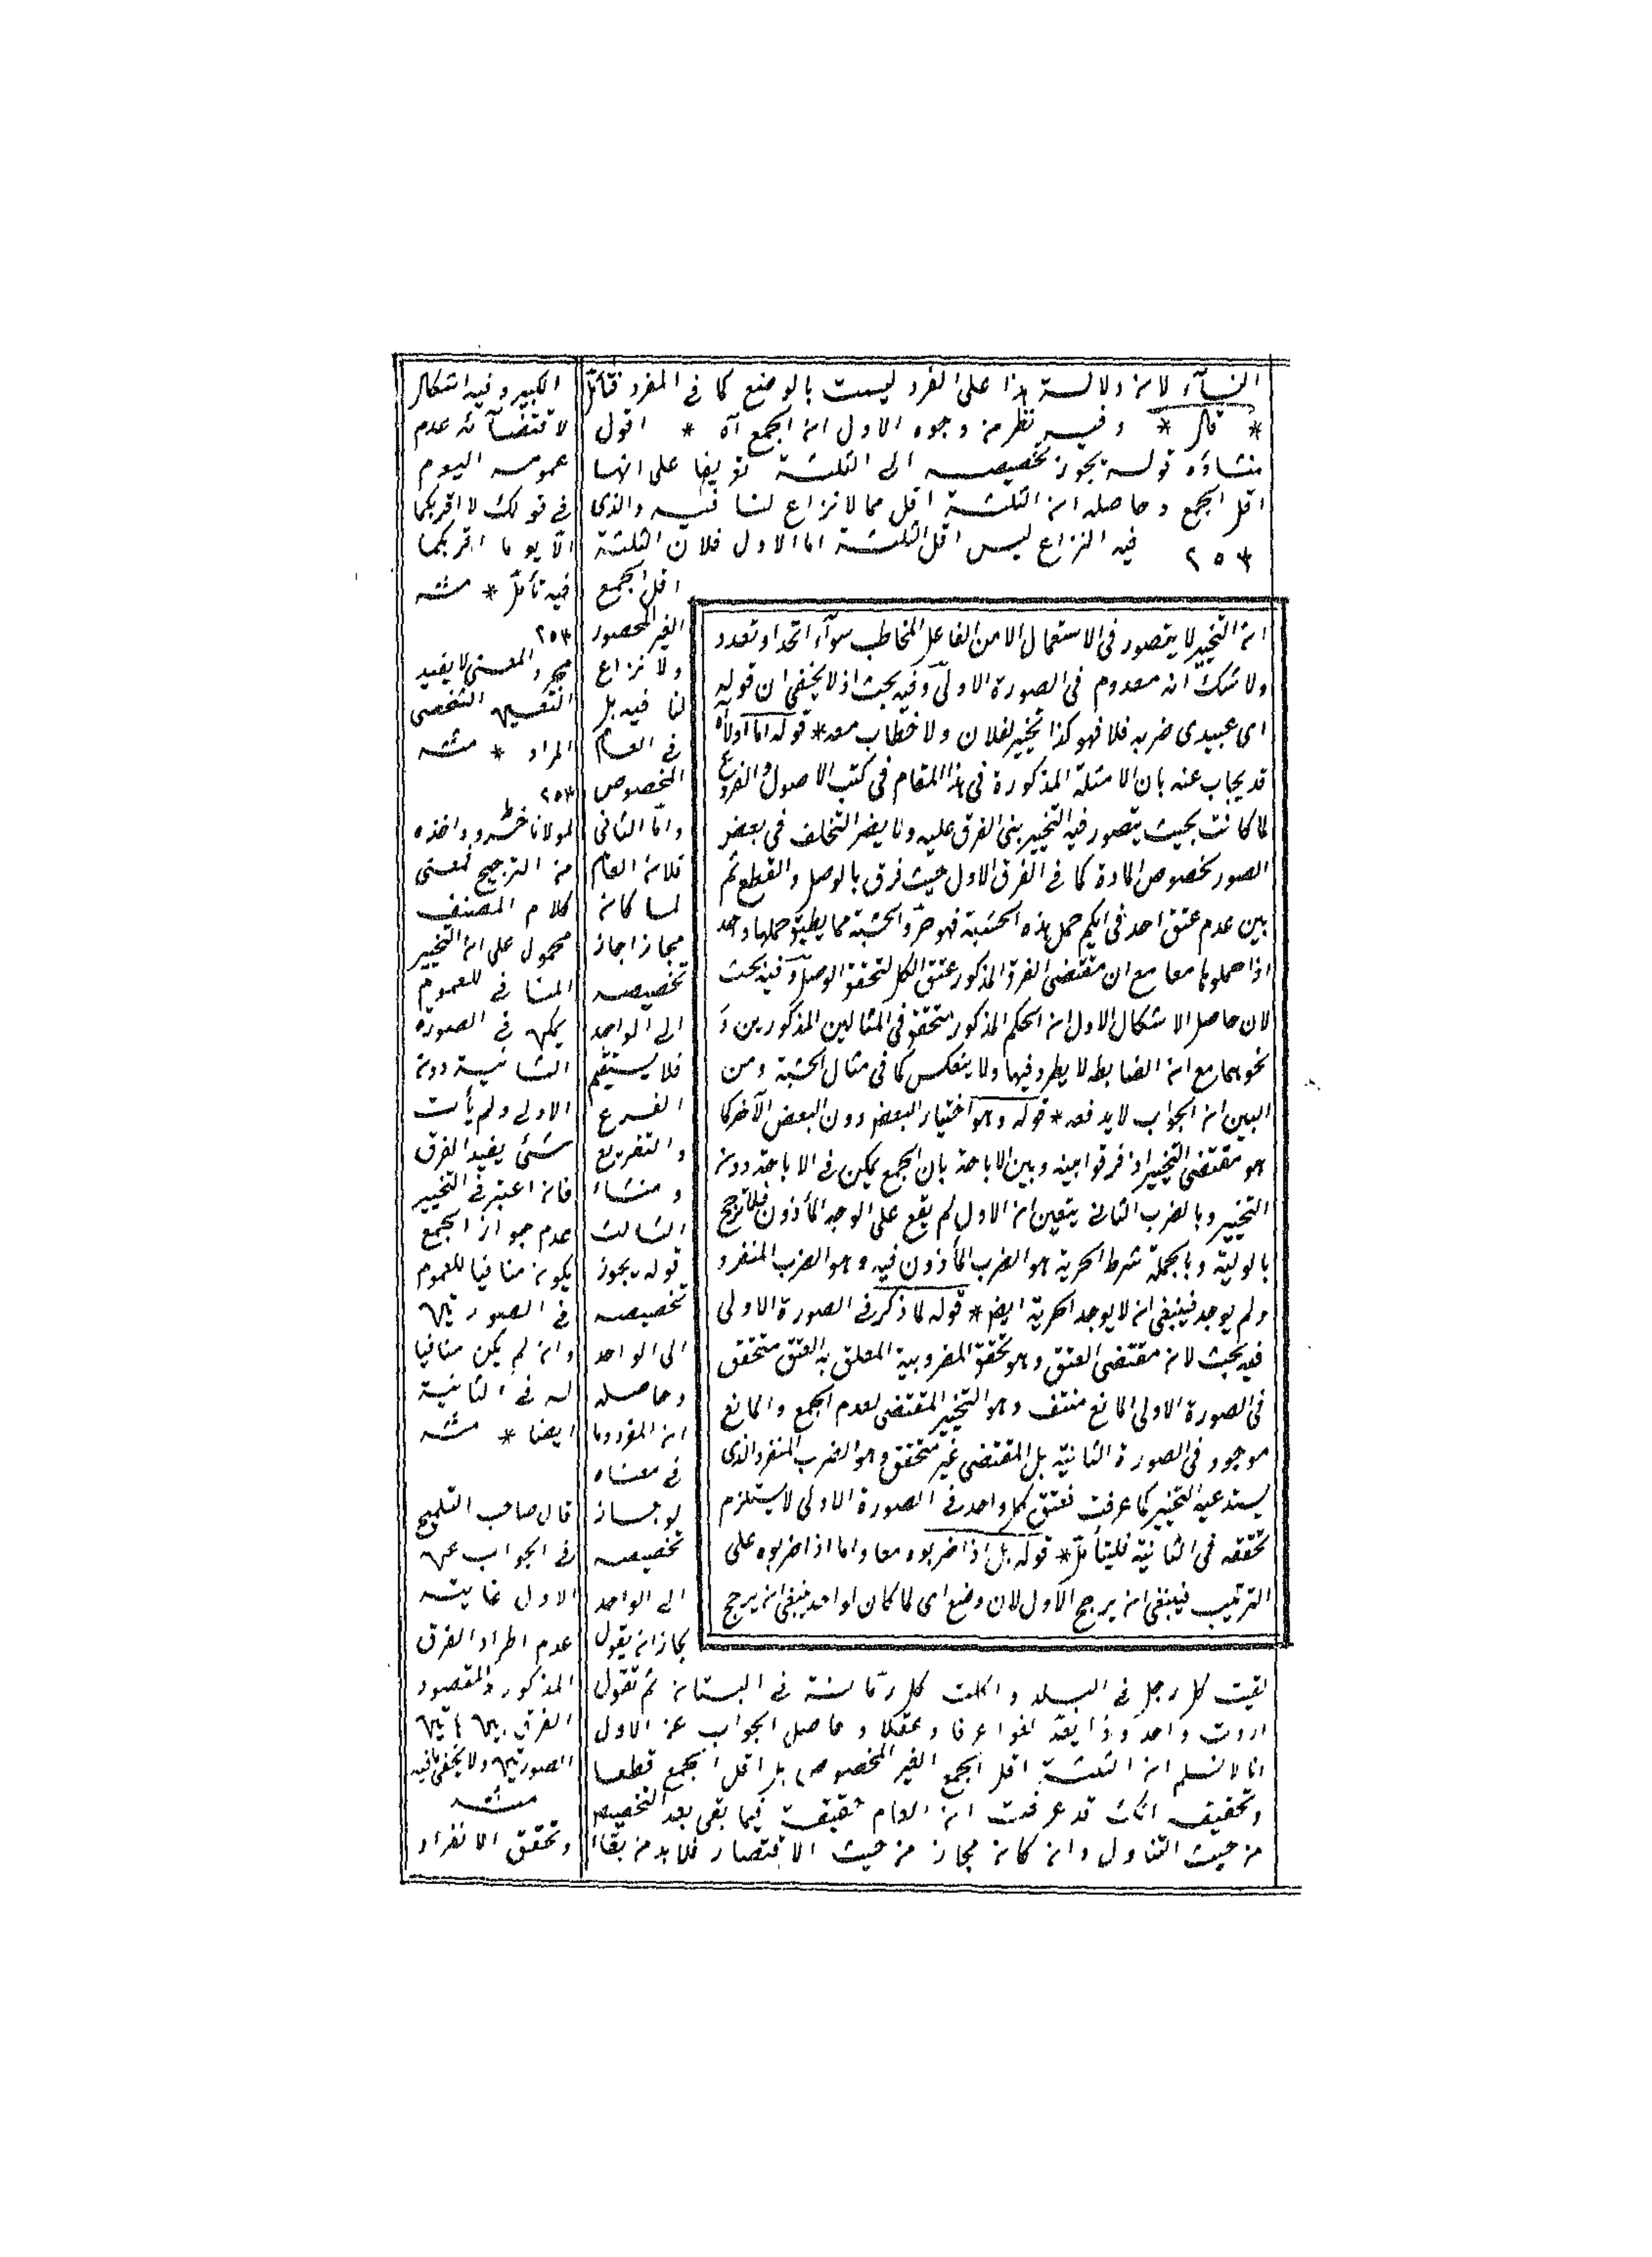 النسآء لان دلالة هذا على الفرد ليست بالوضع كما فى المفرد فتأمل
* قال * وفيه نظر من وجوه الاول ان الجمع آه * اقول
منشاؤه قوله يجوز تخصيصه الى الثلثة تفريعا على انها
اقل الجمع وحاصله ان الثلثة اقل مما لا نزاع لنا فيه والذى
٢٥٣ فيه النزاع ليس اقل الثلثة اما الاول فلان الثلثة
اقل الجمع
الغير المحصور
ولا نزاع
لنا فيه بل
فى العام
المخصوص
واما الثانى
فلان العام
لما كان
مجازا جاز
تخصيصه
الى الواحد
فلا يستقيم
الفرع
والتفريع
ومنشاء
الثالث
قوله يجوز
تخصيصه
الى الواحد
وحاصله
ان المفرد وما
فى معناه
لو جاز
تخصيصه
الى الواحد
لجاز ان يقول
لقيت كل رجل فى البلد واكلت كل رمانة فى البستان ثم تقول
اردت واحدا وذا يعد لغوا عرفا وعقلا وحاصل الجواب عن الاول
انا لا نسلم ان الثلثة اقل الجمع الغير المخصوص بل اقل الجمع قطعا
وتحقيقه انك قد عرفت ان العام حقيقة فيما بقى بعد التخصيص
من حيث التناول وان كان مجاز من حيث الاقتصار فلا بد من بقاء
ان التخيير لا يتصور فى الاستعمال الا من الفاعل المخاطب سوآء اتحد او تعدد
ولا شك انه معدوم فى الصورة الاولى وفيه بحث اذ لا يخفى ان قوله
اى عبيدى ضربه فلا فهو كذا تخيير لفلان ولا خطاب معه * قوله اما اولا آه
قد يجاب عنه بان الامثلة المذكورة فى هذا المقام فى كتب الاصول والفروع
لما كانت بحيث يتصور فيه التخيير بنى الفرق عليه ولا يضر التخلف فى بعض
الصور بخصوص المادة كما فى الفرق الاول حيث فرق بالوصل والقطع ثم
بين عدم عتق احد فى ايكم حمل هذه الخشبة فهو حر والخشبة مما يطيق حملها واحد
اذا حملوها معا مع ان مقتضى الفرق المذكور عتق الكل لتحقق الوصل وفيه بحث
لان حاصل الاشكال الاول ان الحكم المذكور متحقق فى المثالين المذكورين و
نحوهما مع ان الضابطه لا يطرد فيها ولا ينعكس كما فى مثال الخشبة ومن
البين ان الجواب لا يدفعه * قوله وهو اختيار البعض دون البعض الآخر كا
هو مقتضى التخيير اذ فرقوا بينه وبين الاباحة بان الجمع يمكن فى الاباحة دون
التخيير وبالضرب الثانى يتعين ان الاول لم يقع على الوجه المأذون فلا ترجح
بالولية وبالجملة شرط الحرية هو الضرب المأذون فيه وهو الضرب المنفرد
ولم يوجد فينبغى ان لا يوجد الحرية ايضا * قوله لما ذكر فى الصورة الاولى
فيه بحث لان مقتضى العتق وهو تحقق المضروبية المعلق به العتق متحقق
فى الصورة الاولى المانع منتف وهو التخيير المقتضى لعدم الجمع والمانع
موجود فى الصورة الثانية بل المقتضى غير متحقق وهو الضرب المنفرد الذى
يستدعيه التخيير كما عرفت فعتق كل واحد فى الصورة الاولى لا يستلزم
تحققه فى الثانية فليتأمل * قوله بل اذا ضربوه معا واما اذا ضربوه على
الترتيب فينبغى ان يرجح الاول لان وضع اى لما كان لواحد ينبغى ان يرجح
الكبير وفيه اشكال
لاقتضآئه عدم
عموم اليوم
فى قولك لا اقربكما
الا يوما اقربكما
فيه تأمل * منه
٢٥٣
مجرد المعنى لا يفيد
التعيين الشخصى
المراد * منه
٢٥٣
لمولانا خسرو واخذه
من الترجيح فمعنى
كلام المصنف
محمول على ان التخيير
المنافى للعموم
يمكن فى الصورة
الثانية دون
الاولى ولم يأت
بشئ يفيد الفرق
فان اعتبر فى التخيير
عدم جواز الجمع
يكون منافيا للعموم
فى الصورتين
وان لم يكن منافيا
له فى الثانية
ايضا * منه
قال صاحب التلويح
فى الجواب عن
الاول غايته
عدم اطراد الفرق
المذكور والمقصود
الفرق بين هاتين
الصورتين ولا يخفى ما فيه
منه
وتحقق الانفراد